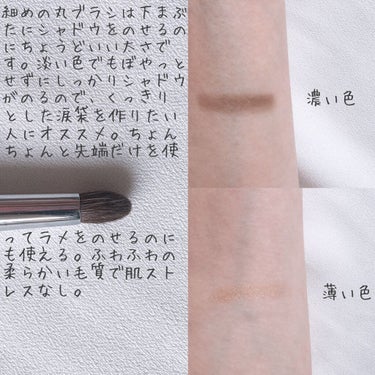 細めの丸ブラシは下まぶ
たにシャドウをのせるの
にちょうどいい太さで
す。淡い色でもぼやっと
せずにしっかりシャドウ
がのるので、くっきり
とした涙袋を作りたい
人にオススメ。ちょん
ちょんと先端だけを使
ってラメをのせるのに
も使える。ふわふわの
柔らかいも質で肌スト
レスなし。
濃い色
薄い色